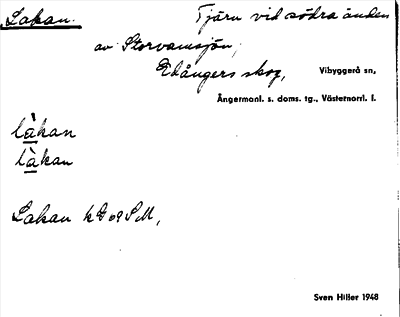 Lakan. Tjärn vid södra änden
av Storvamsjön,
Edångers skog, Vibyggerå sn,
Ångermanl. s. doms. tg., Västernorrl. l.
làkan
làkan
Lakan k
Sven Hiller 1948